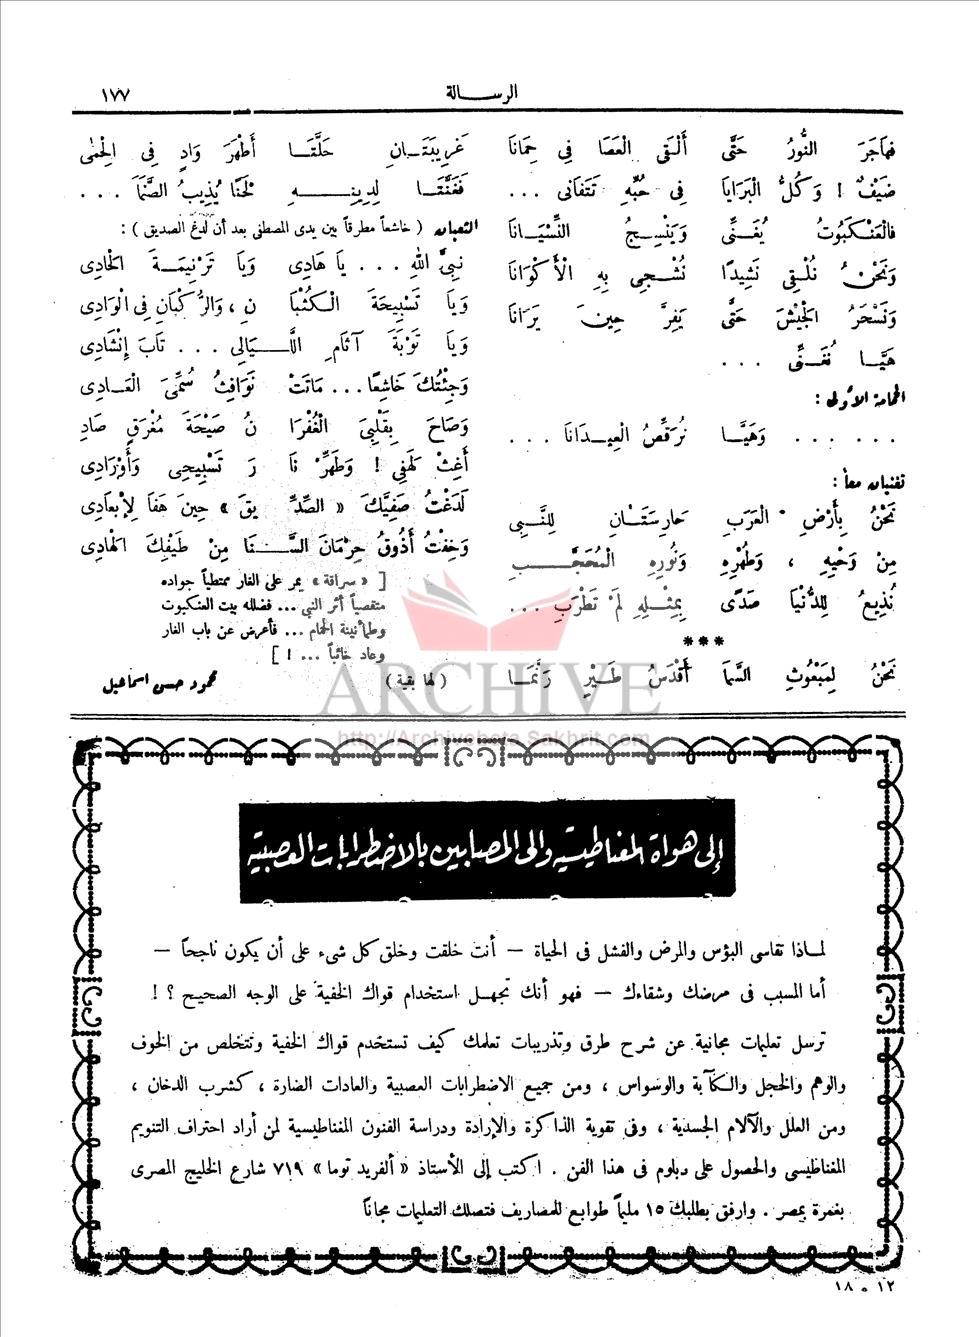 الرســـالة
١٧٧
فهَاجَرَ النُّورُ حَتَّى أَلْقَى الْعَصَا فِي حِمَانَا
ضَيْفٌ ! وَكُلُّ الْبَرَايَا فِي حُبِّهِ تَتَفَانَى . . .
فالْعَنْكَبُوتُ يُغَنِّى وَيَنْسِجُ النِّسْيَانَا
وَنَحْنُ نُلْقِى نَشِيدًا نُشْجِى بِهِ الْأَكْوَانَا
وَنَسْحَرُ الْجَيْشَ حَتَّى يَفِرَّ حِينَ يَرَانَا
هَيَّا نُغَنِّى . . .
الحمامة الأولى :
. . . . . . وَهَيَّا نُرَقِّصُ الْعِيدَانَا . . .
تغنيان معاً :
نَحْنُ بِأَرْضِ الْعَرَبِ حَارِسَتَانِ لِلنَّبِى
مِنْ وَحْيِهِ ، وَطُهْرِهِ وَنُورِهِ الْمُحَجَّبِ
نُذِيعُ لِلدُّنْيَا صَدًى بِمِثْلِهِ لَمْ تَطْرَبِ . . .
***
نَحْنُ لِمَبْعُوثِ السَّمَا أَقْدَسُ طَيْرٍ رَنَّمَا
غَرِيبَتَانِ حَلَّقَا أَطْهَرَ وَادٍ فِى الْحِمَى
فَغَنَّتَا لِدِينِهِ لَحْنًا يُذِيبُ الصَّنَمَا . . .
الثعبان ( خاشعاً مطرقاً بين يدى المصطفى بعد أن لدغ الصديق ) :
نَبِىَّ اللهِ . . . يَا هَادِى وَيَا تَرْنِيمَةَ الْحَادِى
وَيَا تَسْبِيحَةَ الْكُثْبَا نِ ، وَالرُّكْبَانِ فِى الْوَادِى
وَيَا تَوْبَةَ آثَامِ اللَّيَالِى . . . تَابَ إِنْشَادِى
وَجِئْتُكَ خَاشِعًا . . . مَاتَتْ نَوَافِثُ سُمِّىَ الْعَادِى
وَصَاحَ بِقَلْبِىَ الْغُفْرَا نُ صَيْحَةَ مُغْرَقٍ صَادِ
أَغِثْ لَهَفِى ! وَطَهِّرْ نَا رَ تَسْبِيحِى وَأَوْرَادِى
لَدَغْتُ صَفِيَّكَ « الصِّدِّ يقَ » حِينَ هَفَا لِإِبْعَادِى
وَخِفْتُ أَذُوقُ حِرْمَانَ السَّنَا مِنْ طَيْفِكَ الْهَادِى
[ « سراقة » يمر على الغار ممتطياً جواده
متقصياً أثر النبي ... فضلله بيت العنكبوت
وطمأنينة الحمام ... فأعرض عن باب الغار
وعاد خائباً ... ! ]
( لها بقية )
محمود حسن اسماعيل
ARCHIVE
http://Archivebeta.Sakhrit.com
إلى هواة المغناطيسية والى المصابين بالاضطرابات العصبية
لماذا تقاسى البؤس والمرض والفشل فى الحياة — أنت خلقت وخلق كل شىء على أن يكون ناجحاً —
أما المسبب فى مرضك وشقاءك — فهو أنك تجهل استخدام قواك الخفية على الوجه الصحيح ؟ !
ترسل تعليمات مجانية عن شرح طرق وتدريبات تعلمك كيف تستخدم قواك الخفية وتتخلص من الخوف
والوهم والخجل والكآبة والوسواس ، ومن جميع الاضطرابات العصبية والعادات الضارة ، كشرب الدخان ،
ومن العلل والآلام الجسدية ، وفى تقوية الذاكرة والإرادة ودراسة الفنون المغناطيسية لمن أراد احتراف التنويم
المغناطيسى والحصول على دبلوم فى هذا الفن . اكتب إلى الأستاذ « ألفريد توما » ٧١٩ شارع الخليج المصرى
بغمرة بمصر . وارفق بطلبك ١٥ مليماً طوابع للمصاريف فتصلك التعليمات مجاناً